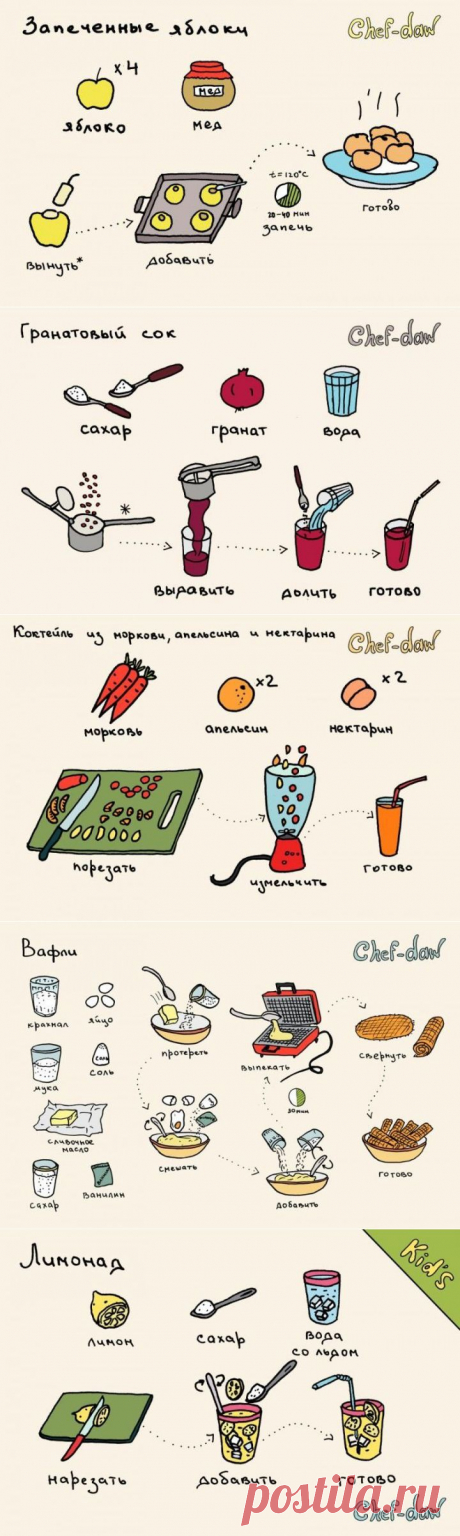 Запеченные яблоки
Chef-daw
x4
мед
яблоко
мед
t=120°C
20-40 мин
запечь
готово
вынуть*
добавить
Гранатовый сок
Chef-daw
сахар
гранат
вода
*
выдавить
долить
готово
Коктейль из моркови, апельсина и нектарина
Chef-daw
x2
x2
морковь
апельсин
нектарин
порезать
измельчить
готово
Вафли
Chef-daw
крахнал
яйцо
протереть
выпекать
свернуть
мука
соль
соль
30 мин
сливочное
масло
смешать
готово
сахар
ванилин
добавить
Лимонад
Kid's
лимон
сахар
вода
со льдом
нарезать
добавить
готово
postila.ru
Chef-daw